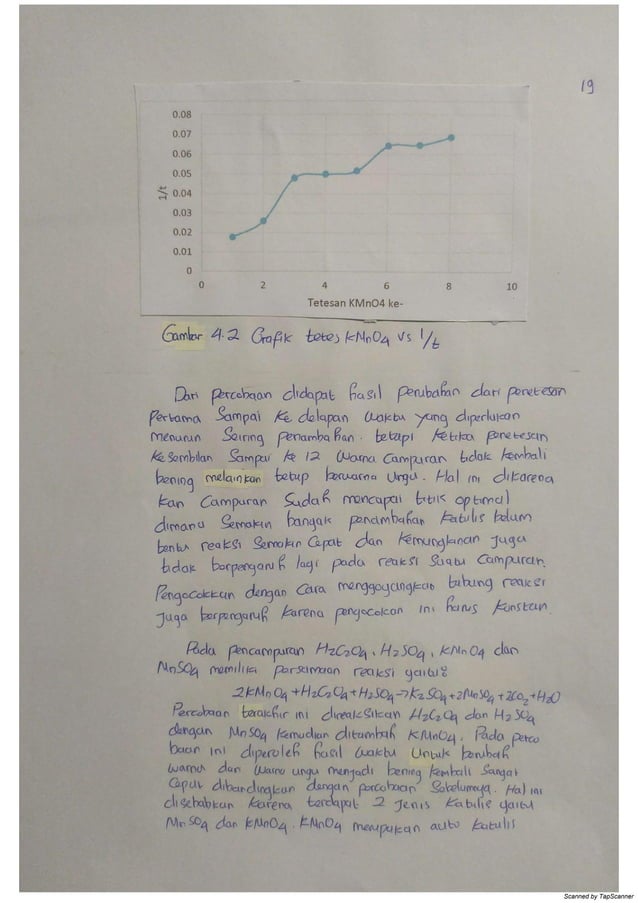 19
0.08
0.07
0.06
0.05
0.04
0.03
0.02
0.01
0
1/t
0 2 4 6 8 10
Tetesan KMnO4 ke-
Gambar 4.2 Grafik tetes KMnO4 vs 1/t
Dari percobaan didapat hasil perubahan dari penetesan
pertama sampai ke delapan waktu yang diperlukan
menurun seiring penambahan. tetapi ketika penetesan
kesembilan sampai ke 12 warna campuran tidak kembali
bening melainkan tetup berwarna ungu. Hal ini dikarena
kan campuran sudah mencapai titik optimal
dimana semakin banyak penambahan katulis belum
tentu reaksi semakin cepat dan kemungkinan juga
tidak berpengaruh lagi pada reaksi suatu campuran.
Pengocokkan dengan cara menggoyangkan tabung reaksi
juga berpengaruh karena pengocokan ini harus konstan.
Pada pencampuran H2C2O4, H2SO4, KMnO4 dan
MnSO4 memiliki persamaan reaksi yaitu:
2KMnO4 + H2C2O4 + H2SO4 → K2SO4 + 2MnSO4 + 2CO2 + H2O
Percobaan terakhir ini direaksikan H2C2O4 dan H2SO4
dengan MnSO4 kemudian ditambah KMnO4. Pada perco
baan ini diperoleh hasil waktu untuk berubah
warna dari warna ungu menjadi bening kembali sangat
cepat dibandingkan dengan percobaan sebelumnya. Hal ini
disebabkan karena terdapat 2 jenis katulis yaitu
MnSO4 dan KMnO4. KMnO4 merupakan auto katulis
Scanned by TapScanner